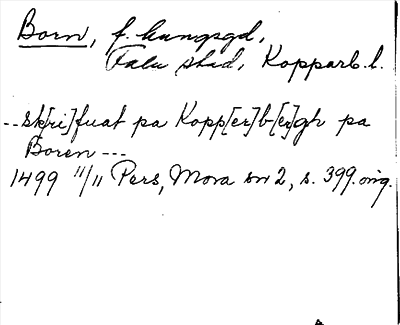 Born, f. kungsgd,
Falu stad, Kopparb. l.
--- sk[ri]fuat pa Kopp[er]b[er]gh pa
Boren ---
1499 11/11 Pers, Mora sn 2, s. 399. orig.